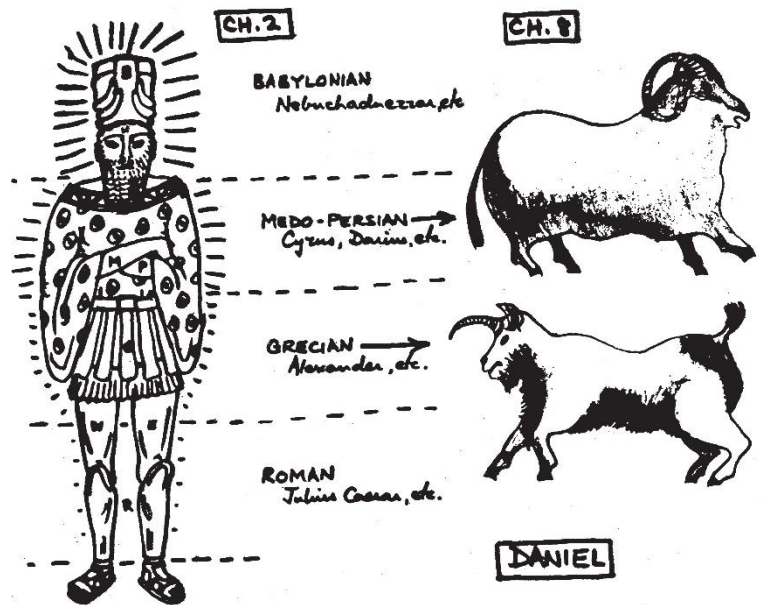 CH. 2
CH. 8
BABYLONIAN
Nebuchadnezzar, etc
MEDO-PERSIAN
Cyrus, Darius, etc.
M P
GRECIAN
Alexander, etc.
W E
ROMAN
Julius Caesar, etc.
R
DANIEL